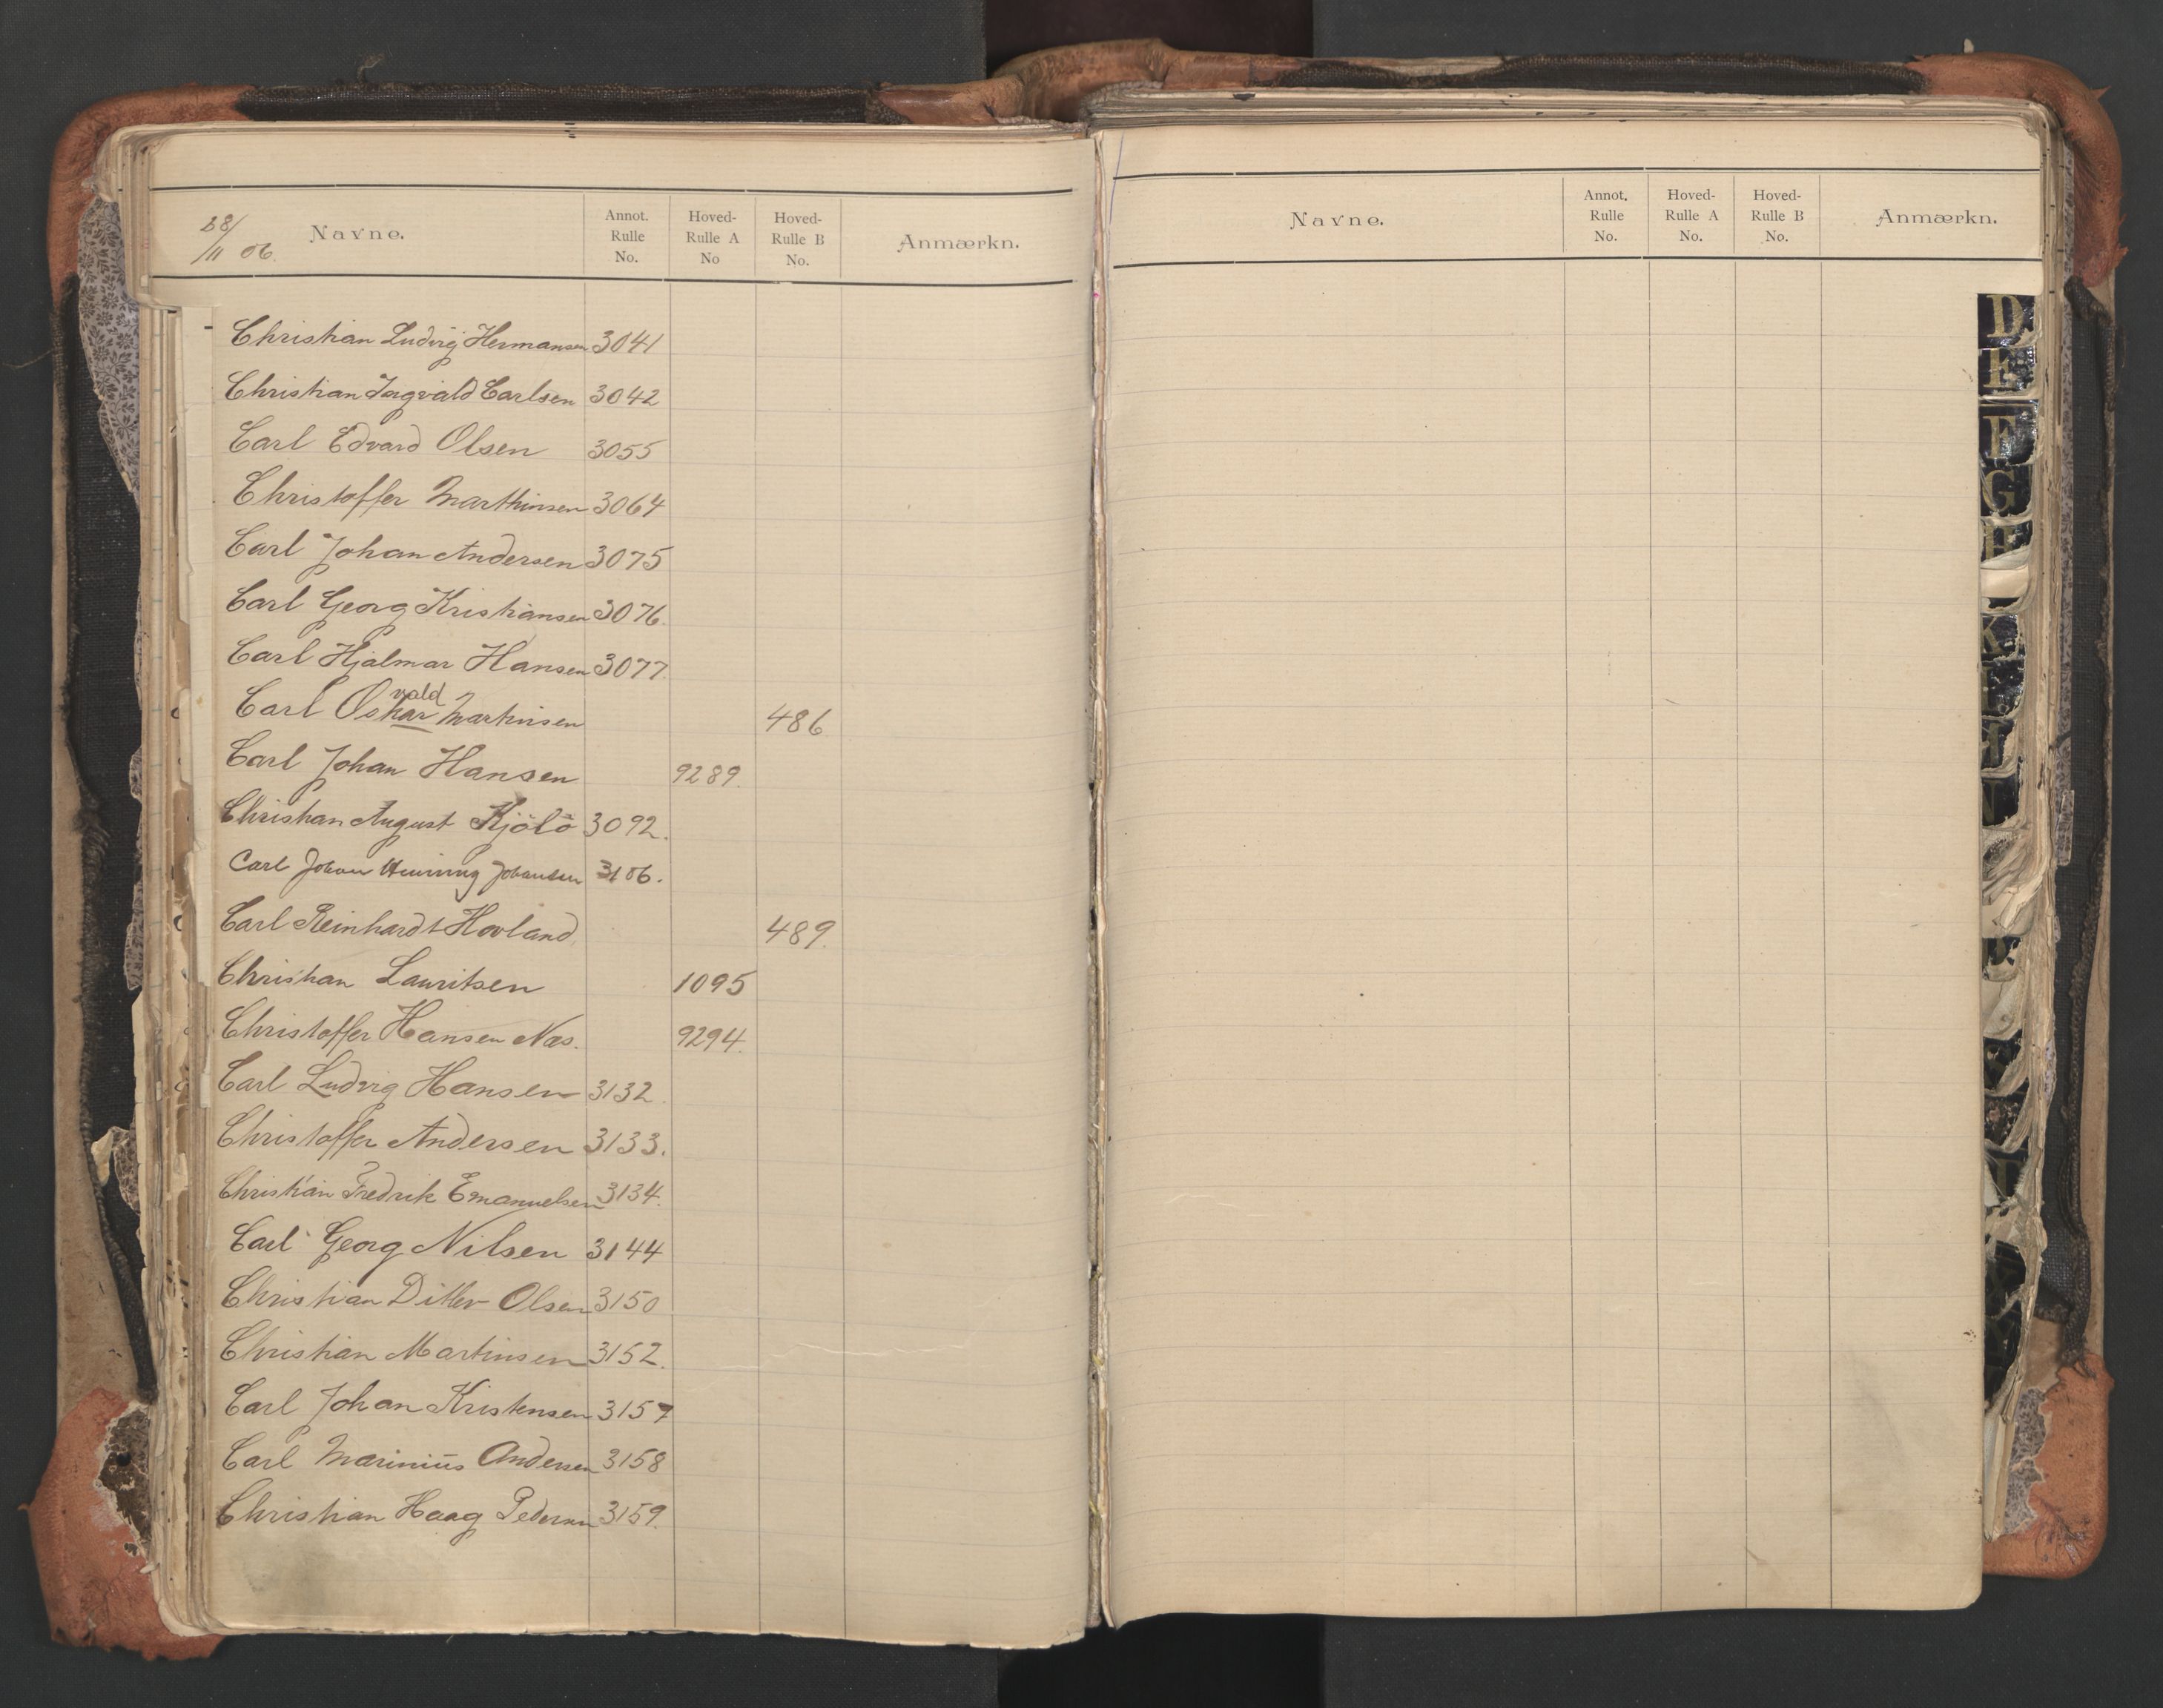 28/11 06.
Navne. Annot. Rulle No. Hoved-Rulle A No Hoved-Rulle B No. Anmærkn.
Christian Ludvig Hermansen 3041
Christian Ingvald Carlsen 3042
Carl Edvard Olsen 3055
Christoffer Marthinsen 3064
Carl Johan Andersen 3075
Carl Georg Kristiansen 3076.
Carl Hjalmar Hansen 3077.
vald
Carl Oskar Martinsen 486
Carl Johan Hansen 9289.
Christian August Kjölö 3092.
Carl Johan Henning Johansen 3106.
Carl Reinhardt Hovland 489.
Christian Lauritsen 1095
Christoffer Hansen Næs. 9294.
Carl Ludvig Hansen 3132.
Christoffer Andersen 3133.
Christian Fredrik Emanuelsen 3134.
Carl Georg Nilsen 3144
Christian Ditlev Olsen 3150
Christian Martinsen 3152.
Carl Johan Kristensen 3157
Carl Marinius Andersen 3158
Christian Haag Pedersen 3159.
Navne. Annot. Rulle No. Hoved-Rulle A No. Hoved-Rulle B No. Anmærkn.
D
E
F
G
K
N